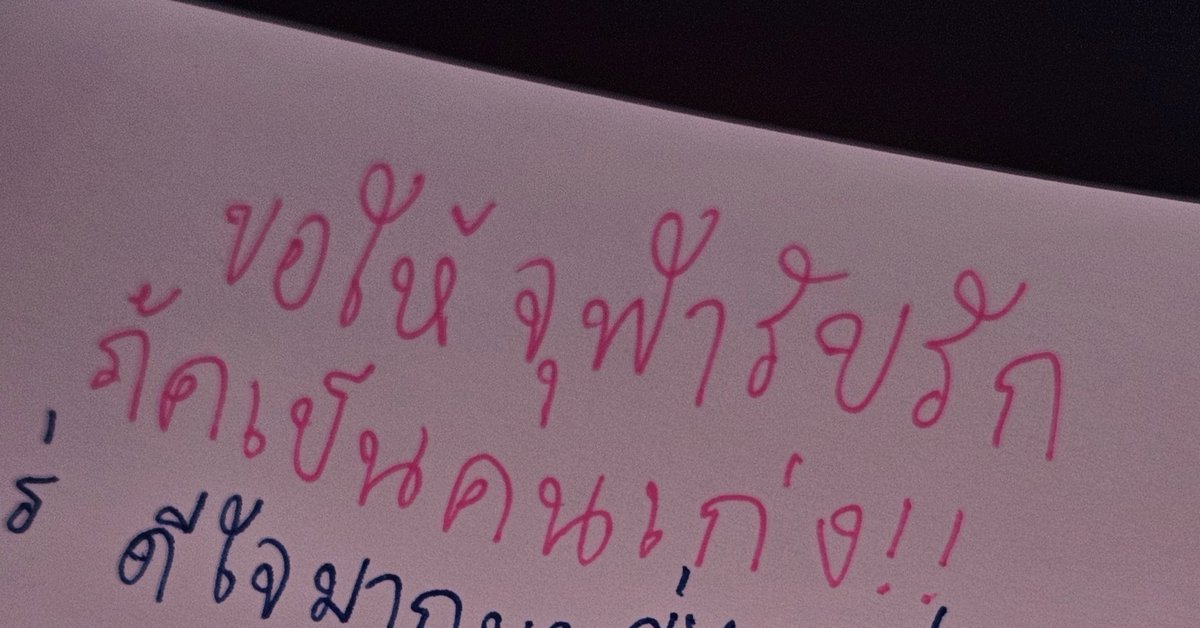 ขอให้ จุฬารับรัก
ภัคเป็นคนเก่ง!!
ร่ ดีใจมาก